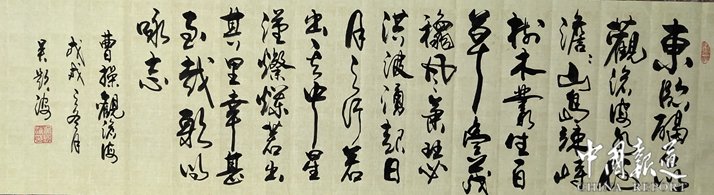 東臨碣
觀滄海水
澹澹山島竦峙
樹木叢生百
草豐茂
穐風蕭瑟
洪波湧起日
月之行若
出其中星
漢燦爛若出
其里幸甚
至哉歌以
咏志
曹操觀滄海
戊戌之冬月
吴海
中国報道
CHINA REPORT